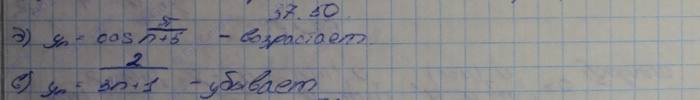 37.50.
д) yn = cos π/n+5 - возрастает
е) yn = 2/3n+1 - убывает